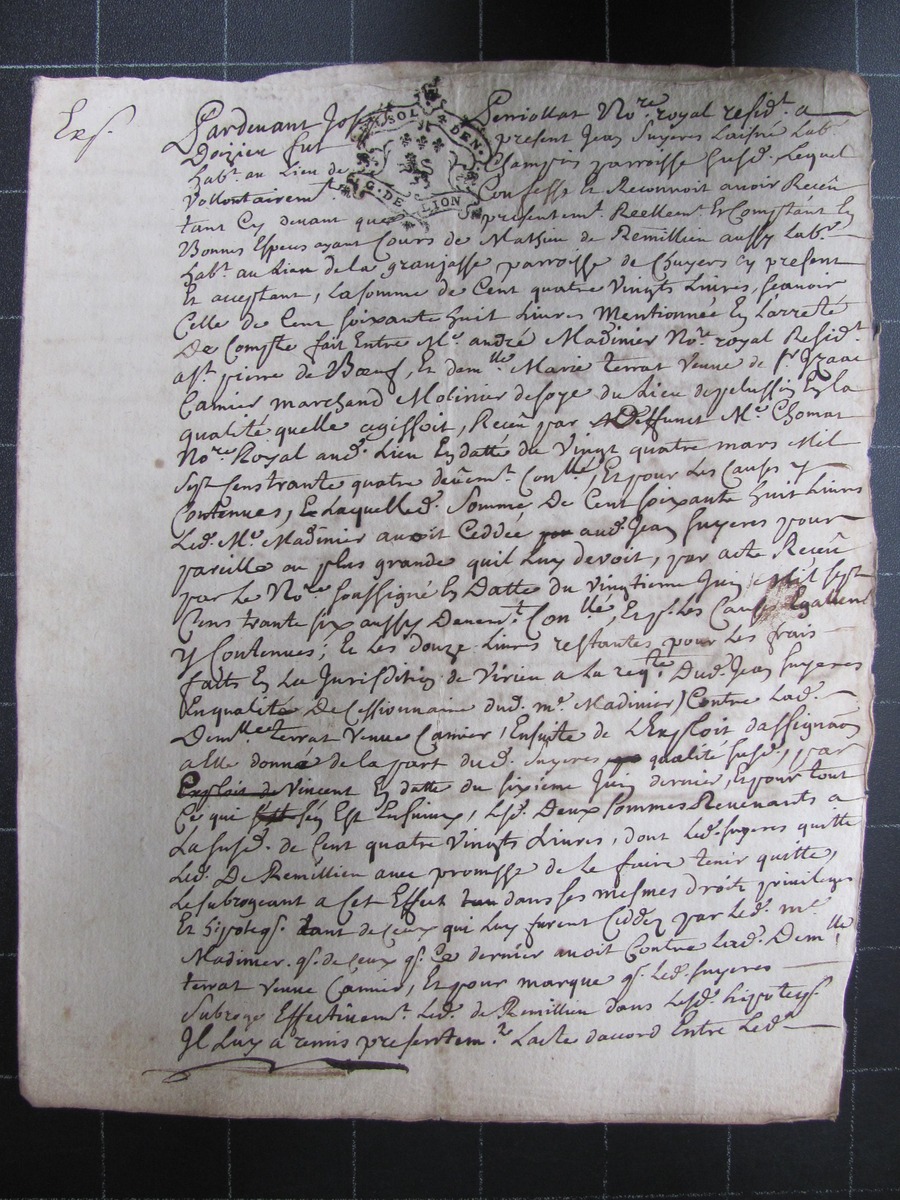 Exs.
Pardevant Jos Periollat No.re royal resid.t a
Doizieu fut present Jean Suyeres Laisné Lab.r
hab.t au Lieu de Champas parroisse Susd. Lequel
Vollontairem.t Confesse Et Reconnoit avoir Receu
tant Cy devant que presentem.t Reellem.t Et Comptant En
Bonnes Especes ayant Cours de Mathieu de Remillieu aussy Lab.r
hab.t au Lieu de la granjasse parroisse de Chuyers Cy present
Et acceptant, La somme de Cent quatre Vingts Livres, scavoir
Celle de Cent soixante huit Livres Mentionnée En Larreté
De Compte fait Entre M.e andré Madinier No.re royal Resid.t
a s.t pierre de Bœuf, Et dem.lle Marie terrat Veuve de s.r Izaac
Camier marchand Molinier de soye du Lieu de pelussin En la
qualité quelle agissoit, Receu par Deffunct M.e Chomat
No.re Royal aud. Lieu En datte du Vingt quatre mars Mil
Sept Cens trante quatre deüem.t Con.llé, Et pour Les Causes y
Contenues, Laquelle d. Somme De Cent soixante huit Livres
Led. M.e Madinier avoit Ceddée aud. Jean Suyeres pour
pareille ou plus grande quil Luy devoit, par acte Receu
par Le No.re soussigné En Datte du Vingtieme Juin Mil sept
Cens trante six aussy Deuem.t Con.llé, Et p.r Les Causes Egallem.t
y Contenues; Et Les douze Livres restantes pour Les frais
faits En La Jurisdition de Virieu a La req.te Dud. Jean Suyeres
En qualité De Cessionnaire dud. m.e Madinier) Contre Lad.
Dem.lle terrat Veuve Camier, Ensuite de LExploit dassignaōn
a Elle donné de la part dud. Suyeres qualité susd., par
Exploit de Vincent En datte du sixieme Juin dernier, Et pour tout
Ce qui sen Est Ensuivy, Lesd. Deux sommes Revenants a
La susd. de Cent quatre Vingts Livres, dont Led. Suyeres quitte
Led. De Remillieu avec promesse de Le faire tenir quitte,
Le subrogeant a Cet Effect dans ses mesmes droits privileges
Et hipoteq. tant de Ceux qui Luy furent Ceddez par Led. m.e
Madinier. q. de Ceux q. Ce dernier avoit Contre Lad. Dem.lle
terrat Veuve Camier, Et pour marque q. Led. Suyeres
Subroge Effectivem.t Led. de Remillieu dans Lesd. hippoteq.
Il Luy a remis presentem.t Lacte daccord Entre Led.
SOL DEN.
G. DE LION